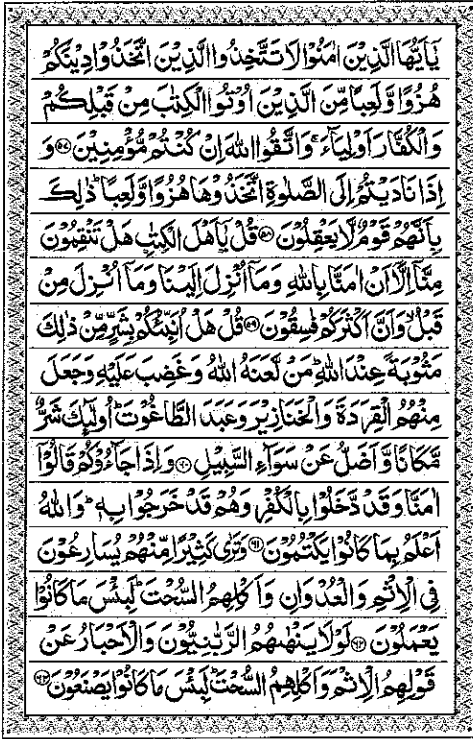 يٰۤاَيُّهَا الَّذِيْنَ اٰمَنُوْا لَا تَتَّخِذُوا الَّذِيْنَ اتَّخَذُوْا دِيْنَكُمْ
هُزُوًا وَّلَعِبًا مِّنَ الَّذِيْنَ اُوْتُوا الْكِتٰبَ مِنْ قَبْلِكُمْ
وَالْكُفَّارَ اَوْلِيَآءَ ۚ وَاتَّقُوا اللّٰهَ اِنْ كُنْتُمْ مُّؤْمِنِيْنَ ۝۵۷ وَ
اِذَا نَادَيْتُمْ اِلَى الصَّلٰوةِ اتَّخَذُوْهَا هُزُوًا وَّلَعِبًا ؕ ذٰلِكَ
بِاَنَّهُمْ قَوْمٌ لَّا يَعْقِلُوْنَ ۝۵۸ قُلْ يٰۤاَهْلَ الْكِتٰبِ هَلْ تَنْقِمُوْنَ
مِنَّاۤ اِلَّاۤ اَنْ اٰمَنَّا بِاللّٰهِ وَمَاۤ اُنْزِلَ اِلَيْنَا وَمَاۤ اُنْزِلَ مِنْ
قَبْلُ ۙ وَاَنَّ اَكْثَرَكُمْ فٰسِقُوْنَ ۝۵۹ قُلْ هَلْ اُنَبِّئُكُمْ بِشَرٍّ مِّنْ ذٰلِكَ
مَثُوْبَةً عِنْدَ اللّٰهِ ؕ مَنْ لَّعَنَهُ اللّٰهُ وَغَضِبَ عَلَيْهِ وَجَعَلَ
مِنْهُمُ الْقِرَدَةَ وَالْخَنَازِيْرَ وَعَبَدَ الطَّاغُوْتَ ؕ اُولٰٓئِكَ شَرٌّ
مَّكَانًا وَّاَضَلُّ عَنْ سَوَآءِ السَّبِيْلِ ۝۶۰ وَاِذَا جَآءُوْكُمْ قَالُوْۤا
اٰمَنَّا وَقَدْ دَّخَلُوْا بِالْكُفْرِ وَهُمْ قَدْ خَرَجُوْا بِهٖ ؕ وَاللّٰهُ
اَعْلَمُ بِمَا كَانُوْا يَكْتُمُوْنَ ۝۶۱ وَتَرٰى كَثِيْرًا مِّنْهُمْ يُسَارِعُوْنَ
فِى الْاِثْمِ وَالْعُدْوَانِ وَاَكْلِهِمُ السُّحْتَ ؕ لَبِئْسَ مَا كَانُوْا
يَعْمَلُوْنَ ۝۶۲ لَوْلَا يَنْهٰىهُمُ الرَّبّٰنِيُّوْنَ وَالْاَحْبَارُ عَنْ
قَوْلِهِمُ الْاِثْمَ وَاَكْلِهِمُ السُّحْتَ ؕ لَبِئْسَ مَا كَانُوْا يَصْنَعُوْنَ ۝۶۳